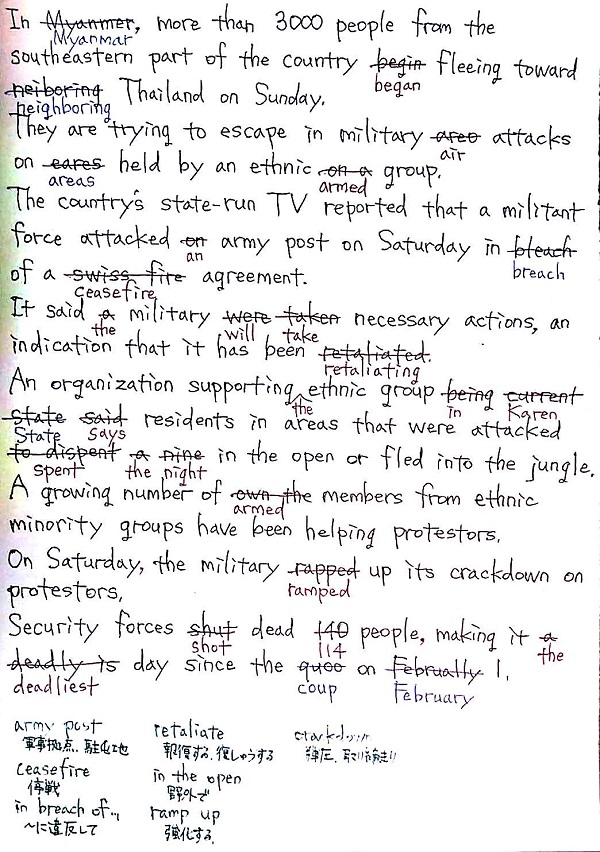 In Myanmer, more than 3000 people from the
Myanmar
southeastern part of the country begin fleeing toward
began
neiboring Thailand on Sunday.
neighboring
They are trying to escape in military areo attacks
air
on eares held by an ethnic on a group.
areas armed
The country's state-run TV reported that a militant
force attacked on army post on Saturday in bleach
an breach
of a swiss fire agreement.
ceasefire
It said a military were taken necessary actions, an
the will take
indication that it has been retaliated.
retaliating
An organization supporting ethnic group being current
the in Karen
state said residents in areas that were attacked
State says
to dispent a nine in the open or fled into the jungle.
spent the night
A growing number of own the members from ethnic
armed
minority groups have been helping protestors.
On Saturday, the military rapped up its crackdown on
ramped
protestors.
Security forces shut dead 140 people, making it a
shot 114 the
deadly is day since the quoo on Februally 1.
deadliest coup February
army post retaliate crackdown
軍事拠点、駐屯地 報復する、復しゅうする 弾圧、取り締まり
ceasefire in the open
停戦 野外で
in breach of... ramp up
〜に違反して 強化する